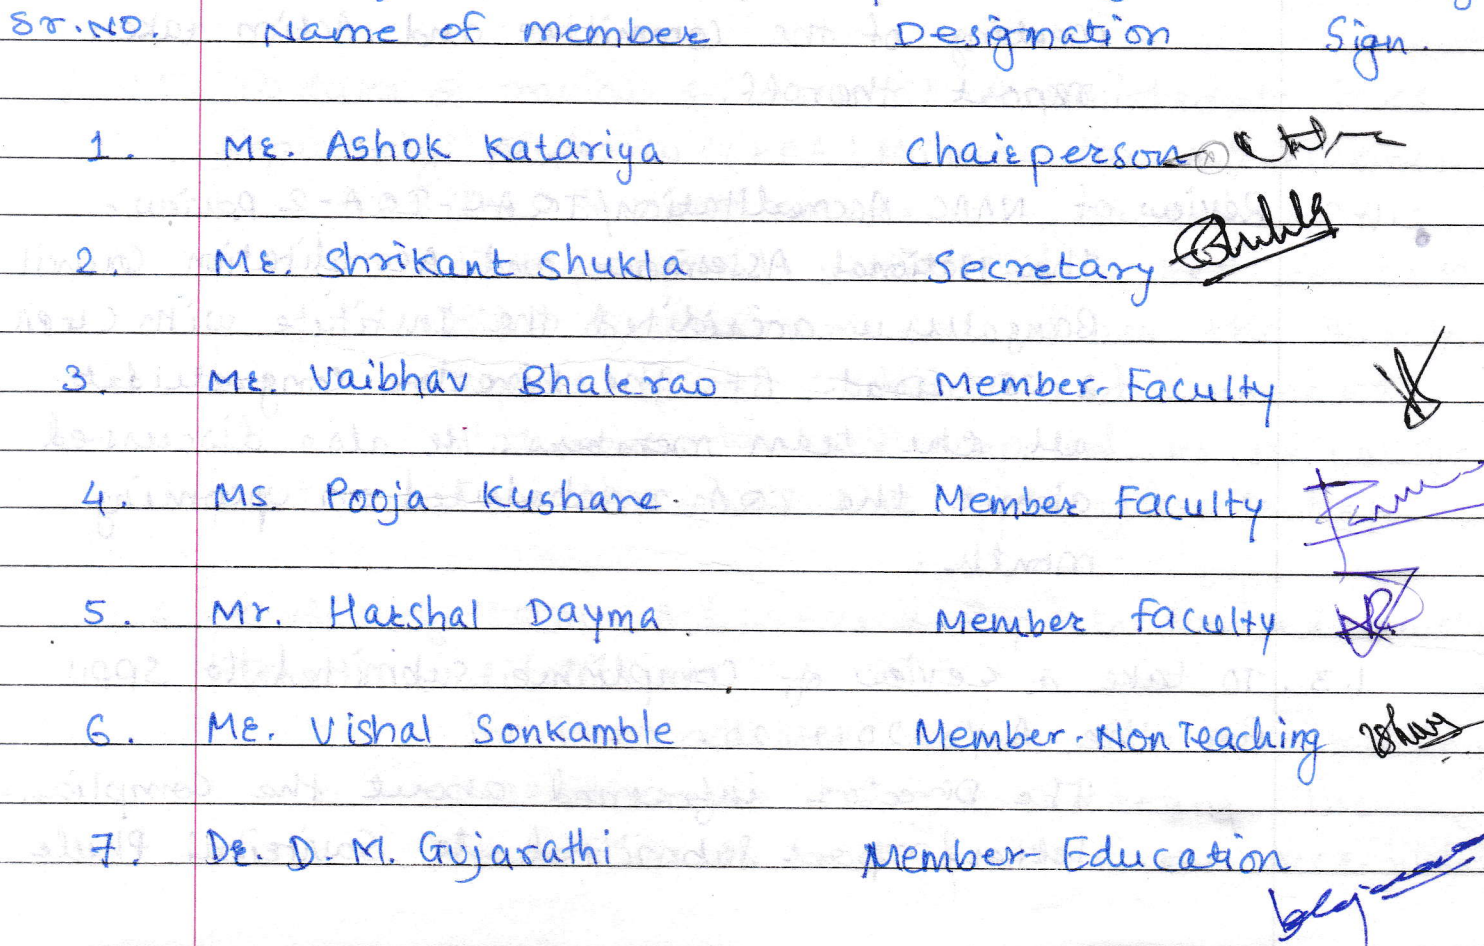 Sr.No. Name of member Designation Sign.
1. Mr. Ashok Katariya Chairperson
2. Mr. Shrikant Shukla Secretary Shukla
3. Mr. Vaibhav Bhalerao Member. Faculty
4. Ms. Pooja Kushare. Member Faculty
5. Mr. Harshal Dayma. Member faculty
6. Mr. Vishal Sonkamble Member. Non Teaching
7. Dr. D. M. Gujarathi Member-Education